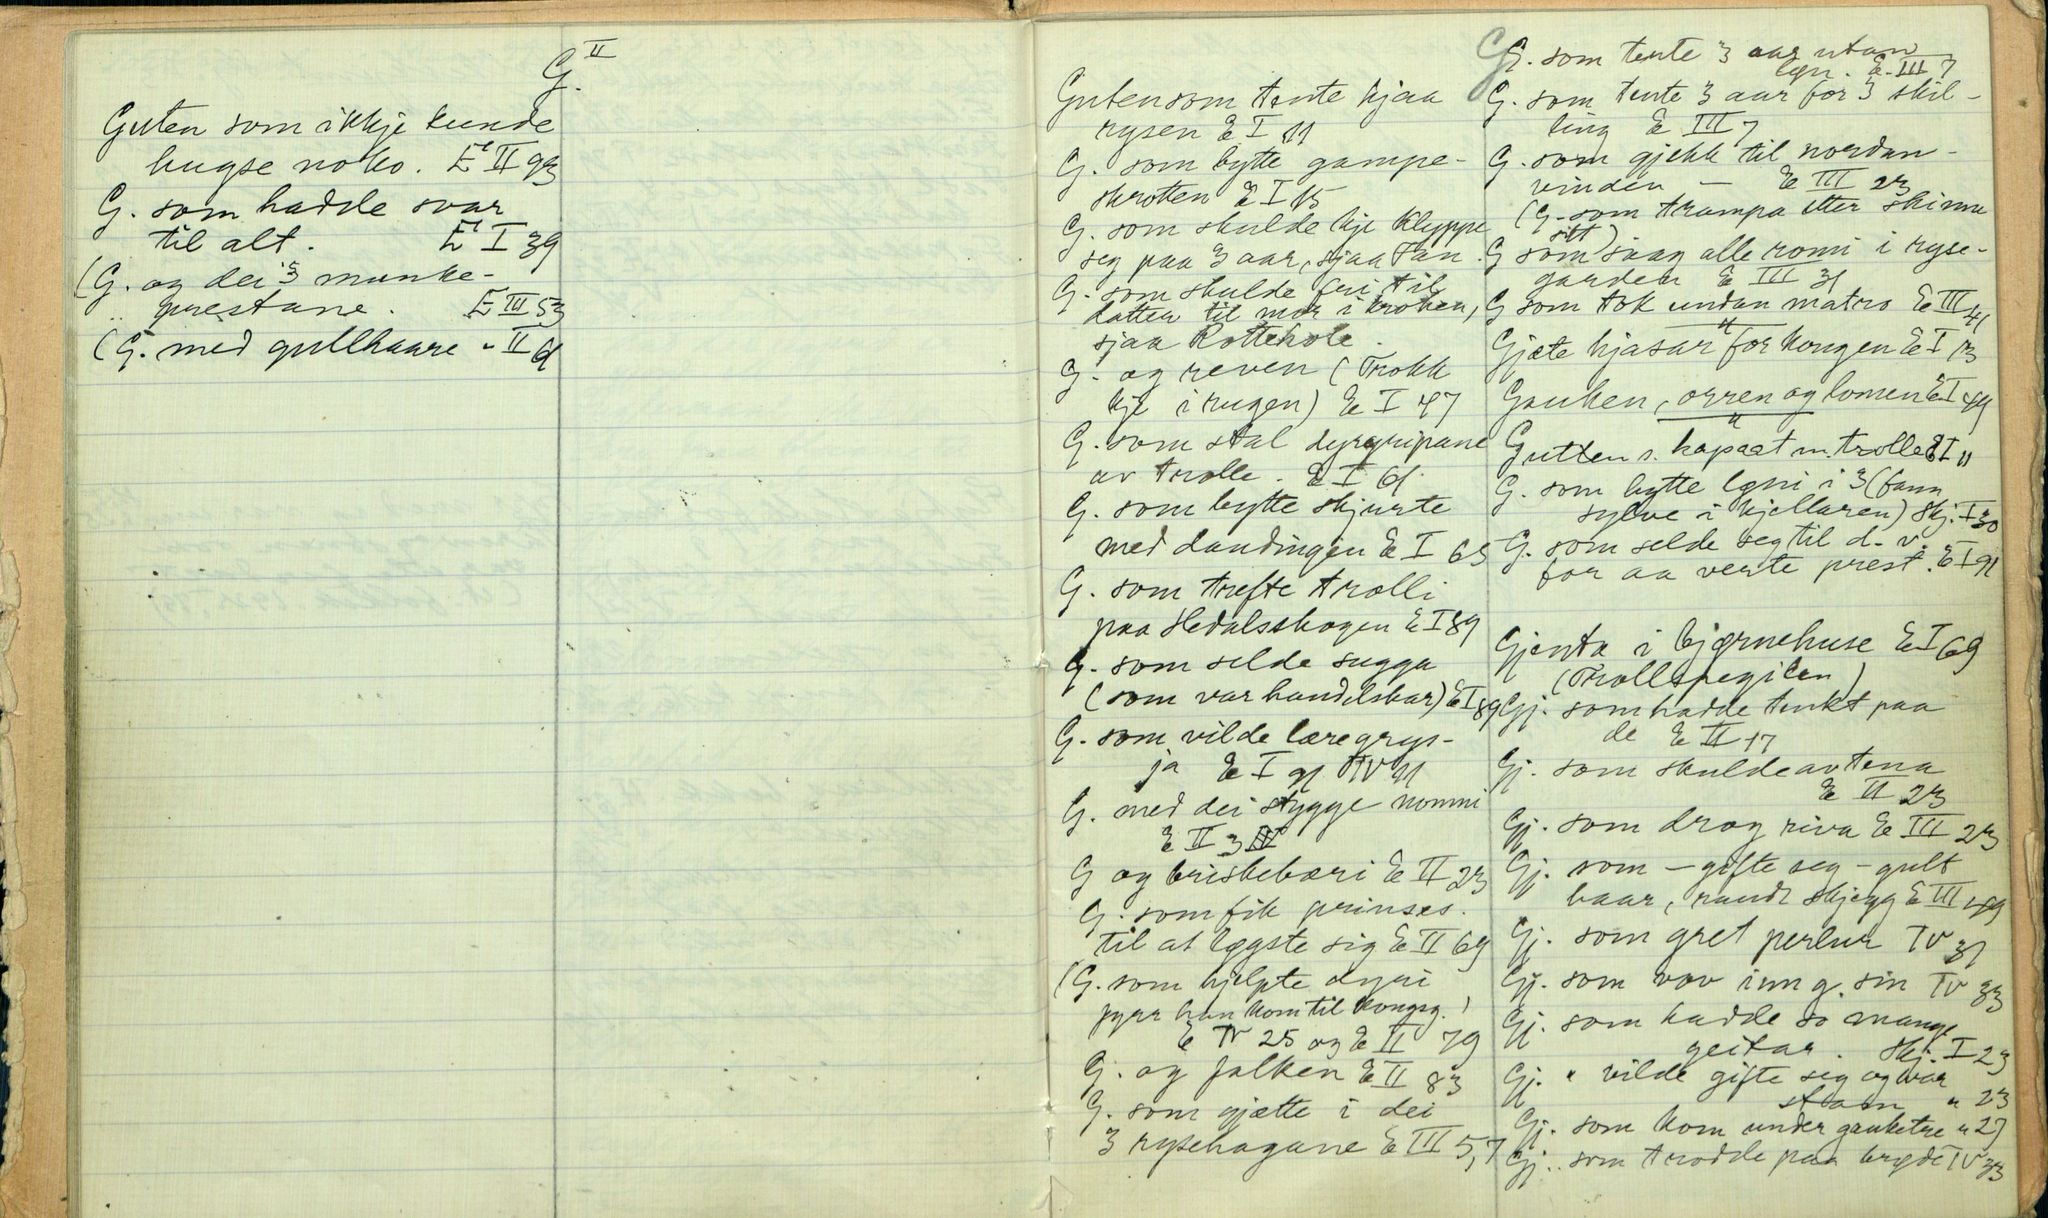 G. II
Guten som ikkje kunde
hugse noko. E II 93
G. som hadde svar
til alt. E I 39
(G. og dei 3 munke-
prestane. E III 53
(G. med gullhaare " II 61
Guten som tente hjaa
rysen E I 11
G. som bytte gampe-
skroten E I 15
G. som skulde kje klyppe
seg paa 3 aar, sjaa Fan.
G. som skulde fri til
datter til mor i kroken,
sjaa Rottehole.
G. og reven (Trokk
kje i rugen) E I 47
G. som stal dyrgripane
av trolle. E I 61.
G. som bytte skjurte
med daudingen E I 65
G. som trefte trolli
paa Hedalsskogen E I 89
G. som selde sugga
(som var handelskar) E I 89
G. som vilde lære grys-
ja E I 91 IV 41
G. med dei stygge nommi
E II 3
G og briskebæri E II 23
G. som fik prinses.
til at løgste sig E II 69
(G. som hjelpte dyri
fyrr han kom til kongsg.)
E IV 25 og E II 79
G. og falken E II 83
G. som gjætte i dei
3 rysehagane E III 5, 7
G
G. som tente 3 aar utan
løn. E. III 7
G. som tente 3 aar for 3 skil-
ling E III 7
G. som gjekk til nordan-
vinden — E III 23
(G. som trampa etter skinne
sitt)
G som saag alle romi i ryse-
garden E III 31
G som tok undan matro E III 41
"
Gjete hjasar for kongen E I 13
Gauken, orren og lomen E I 49
"
Gutten s. kapaat m. trolle E I 11
G. som bytte løni i 3 (fann
sylve i kjellaren) Skj. I 30
G. som selde seg til d. v.
for aa verte prest. E I 91
Gjenta i bjørnehuse E I 69
(Trollspegilen)
Gj. som hadde tenkt paa
de E II 17
Gj. som skulde avtena
E II 23
Gj. som drog riva E III 23
Gj. som — gifte seg — gult
haar, raudt skjegg E III 49
Gj. som gret perlur IV 31
Gj. som vov inn g. sin IV 33
Gj. som hadde so mange
geitar. Skj. I 23
Gj. " vilde gifte seg og var
stam " 23
Gj. som kom under gauketre " 27
Gj. .. som trodde paa bryde IV 33